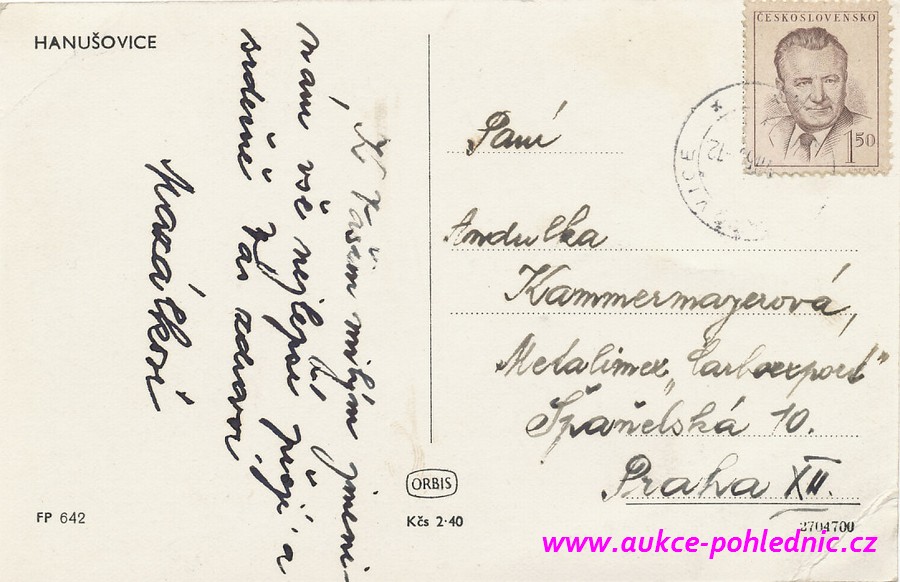 HANUŠOVICE
K Vašim milým jmeni-
nám vše nejlepší přejí a
srdečně Vás zdraví.
Kazálkovi
FP 642
ORBIS
Kčs 2·40
ČESKOSLOVENSKO
1 50
Paní
Andulka
Kammermayerová,
Metalimex „Carboexport"
Španělská 10.
Praha XII.
2704700
www.aukce-pohlednic.cz